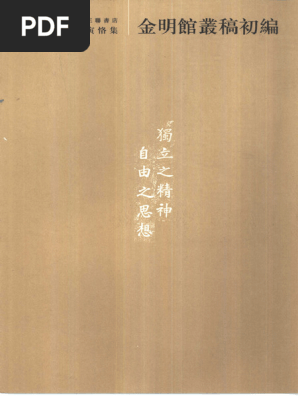 PDF
金明館叢稿初編
寅恪集
獨立之精神
自由之思想